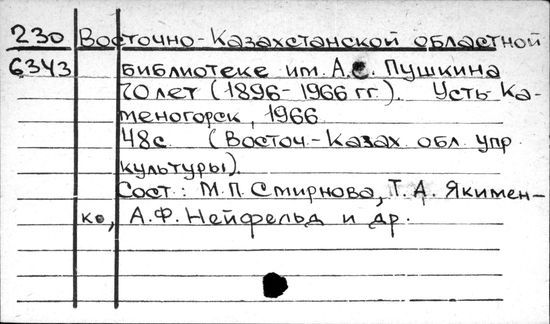 230 Восточно-Казахстанской областной
6343 библиотеке им. А.С. Пушкина
70 лет (1896-1966 гг.). Усть Ка-
меногорск, 1966
48с. (Восточ.-Казах. обл. упр.
культуры).
Сост.: М.П. Смирнова, Т.А. Якимен-
ко, А.Ф. Нейфельд и др.